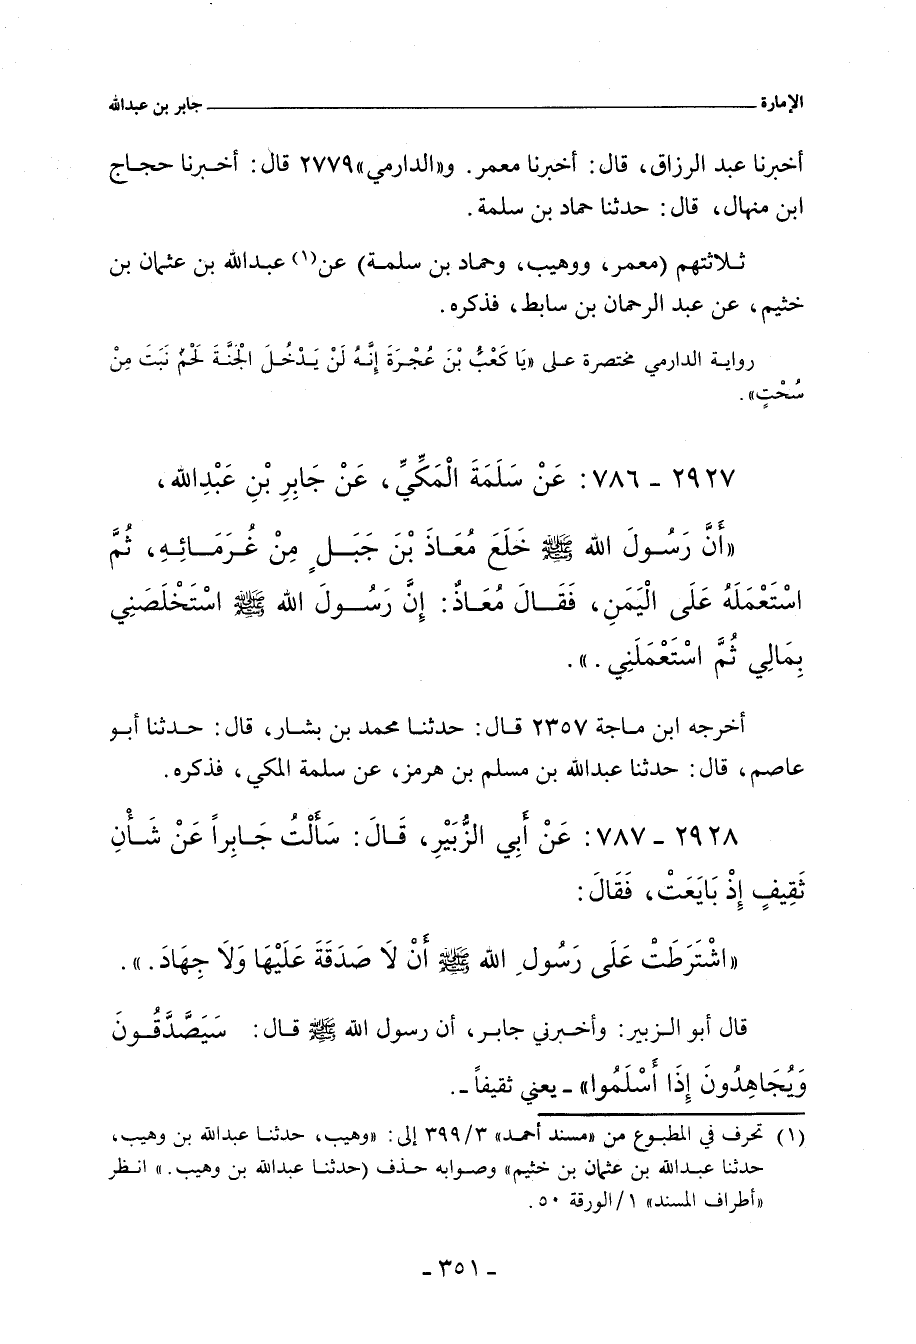 الإمارة ــــــــــــــــــــ جابر بن عبدالله
أخبرنا عبد الرزاق، قال: أخبرنا معمر. و«الدارمي»٢٧٧٩ قال: أخبرنا حجاج
ابن منهال، قال: حدثنا حماد بن سلمة.
ثلاثتهم (معمر، ووهيب، وحماد بن سلمة) عن(١) عبدالله بن عثمان بن
خثيم، عن عبد الرحمان بن سابط، فذكره.
رواية الدارمي مختصرة على «يَا كَعْبُ بْنَ عُجْرَةَ إِنَّهُ لَنْ يَدْخُلَ الْجَنَّةَ لَحْمٌ نَبَتَ مِنْ
سُحْتٍ».
٢٩٢٧ - ٧٨٦: عَنْ سَلَمَةَ الْمَكِّيِّ، عَنْ جَابِرِ بْنِ عَبْدِالله،
«أَنَّ رَسُولَ الله ﷺ خَلَعَ مُعَاذَ بْنَ جَبَلٍ مِنْ غُرَمَائِهِ، ثُمَّ
اسْتَعْمَلَهُ عَلَى الْيَمَنِ، فَقَالَ مُعَاذٌ: إِنَّ رَسُولَ الله ﷺ اسْتَخْلَصَنِي
بِمَالِي ثُمَّ اسْتَعْمَلَنِي.».
أخرجه ابن ماجة ٢٣٥٧ قال: حدثنا محمد بن بشار، قال: حدثنا أبو
عاصم، قال: حدثنا عبدالله بن مسلم بن هرمز، عن سلمة المكي، فذكره.
٢٩٢٨ - ٧٨٧: عَنْ أَبِي الزُّبَيْرِ، قَالَ: سَأَلْتُ جَابِراً عَنْ شَأْنِ
ثَقِيفٍ إِذْ بَايَعَتْ، فَقَالَ:
«اشْتَرَطَتْ عَلَى رَسُولِ الله ﷺ أَنْ لَا صَدَقَةَ عَلَيْهَا وَلَا جِهَادَ.».
قال أبو الزبير: وأخبرني جابر، أن رسول الله ﷺ قال: سَيَصَّدَّقُونَ
وَيُجَاهِدُونَ إِذَا أَسْلَمُوا» - يعني ثقيفاً -.
(١) تحرف في المطبوع من «مسند أحمد» ٣٩٩/٣ إلى: «وهيب، حدثنا عبدالله بن وهيب،
حدثنا عبدالله بن عثمان بن خثيم» وصوابه حذف (حدثنا عبدالله بن وهيب.» انظر
«أطراف المسند» ١/الورقة ٥٠.
- ٣٥١ -